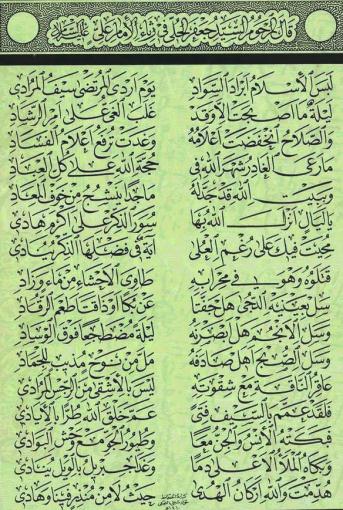 قال المرحوم السيد جعفر الحلي في رثاء الإمام علي عليه السلام
لبس الإسلام أبراد السواد يوم أردى المرتضى سيف المرادي
ليلة ما أصبحت إلا وقد غلب الغي على أمر الرشاد
والصلاح انخفضت أعلامه وغدت ترفع أعلام الفساد
ما رعى الغادر شهر الله في حجة الله على كل العباد
وببيت الله قد جدله ساجدا ينشج من خوف المعاد
يا ليال أنزل الله بها سور الذكر على أكرم هادي
محيت فيك على رغم العلى آية في فضلها الذكر ينادي
قتلوه وهو في محرابه طاوي الأحشاء من ماء وزاد
سل بعينيه الدجى هل جفتا عن بكا أو ذاقتا طعم الرقاد
وسل الأنجم هل أبصرنه ليلة مضطجعا فوق الوساد
وسل الصبح أهل صادفه مل من نوح مذيب للجماد
عاقر الناقة مع شقوته ليس بالأشقى من الرجس المرادي
فلقد عمم بالسيف فتى عم خلق الله طرا بالأيادي
فبكته الإنس والجن معا وطيور الجو مع وحش البوادي
وبكاه الملأ الأعلى دما وغدا جبريل بالويل ينادي
هدمت والله أركان الهدى حيث لا من منذر فينا وهادي